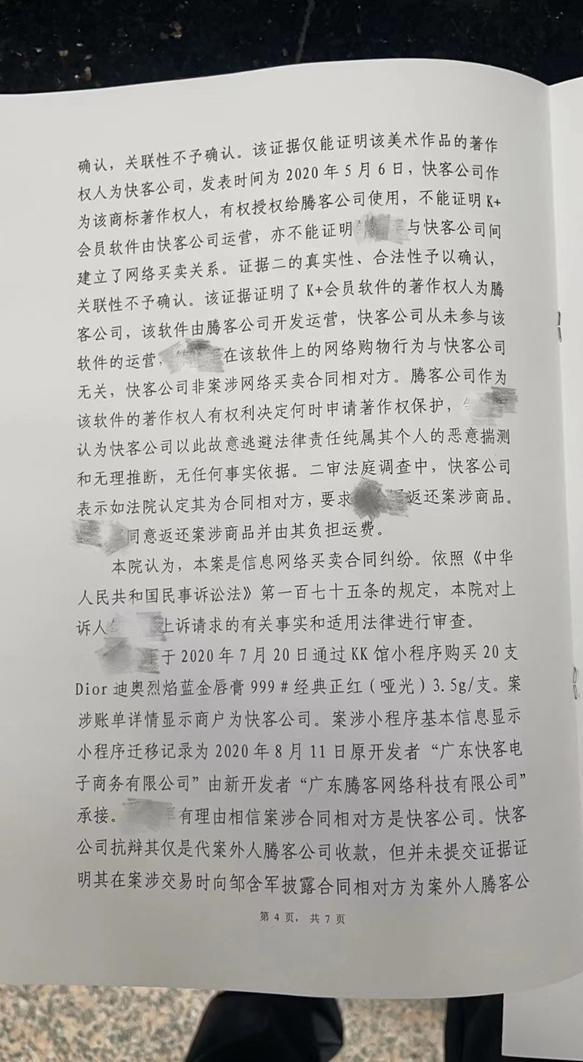 确认，关联性不予确认。该证据仅能证明该美术作品的著作
权人为快客公司，发表时间为2020年5月6日，快客公司作
为该商标著作权人，有权授权给腾客公司使用，不能证明K+
会员软件由快客公司运营，亦不能证明与快客公司间
建立了网络买卖关系。证据二的真实性、合法性予以确认，
关联性不予确认。该证据证明了K+会员软件的著作权人为腾
客公司，该软件由腾客公司开发运营，快客公司从未参与该
软件的运营，在该软件上的网络购物行为与快客公司
无关，快客公司非案涉网络买卖合同相对方。腾客公司作为
该软件的著作权人有权利决定何时申请著作权保护，
认为快客公司以此故意逃避法律责任纯属其个人的恶意揣测
和无理推断，无任何事实依据。二审法庭调查中，快客公司
表示如法院认定其为合同相对方，要求返还案涉商品。
同意返还案涉商品并由其负担运费。
本院认为，本案是信息网络买卖合同纠纷。依照《中华
人民共和国民事诉讼法》第一百七十五条的规定，本院对上
诉人上诉请求的有关事实和适用法律进行审查。
于2020年7月20日通过KK馆小程序购买20支
Dior迪奥烈焰蓝金唇膏999#经典正红（哑光）3.5g/支。案
涉账单详情显示商户为快客公司。案涉小程序基本信息显示
小程序迁移记录为2020年8月11日原开发者“广东快客电
子商务有限公司”由新开发者“广东腾客网络科技有限公司”
承接。有理由相信案涉合同相对方是快客公司。快客
公司抗辩其仅是代案外人腾客公司收款，但并未提交证据证
明其在案涉交易时向邹含军披露合同相对方为案外人腾客公
第4页，共7页